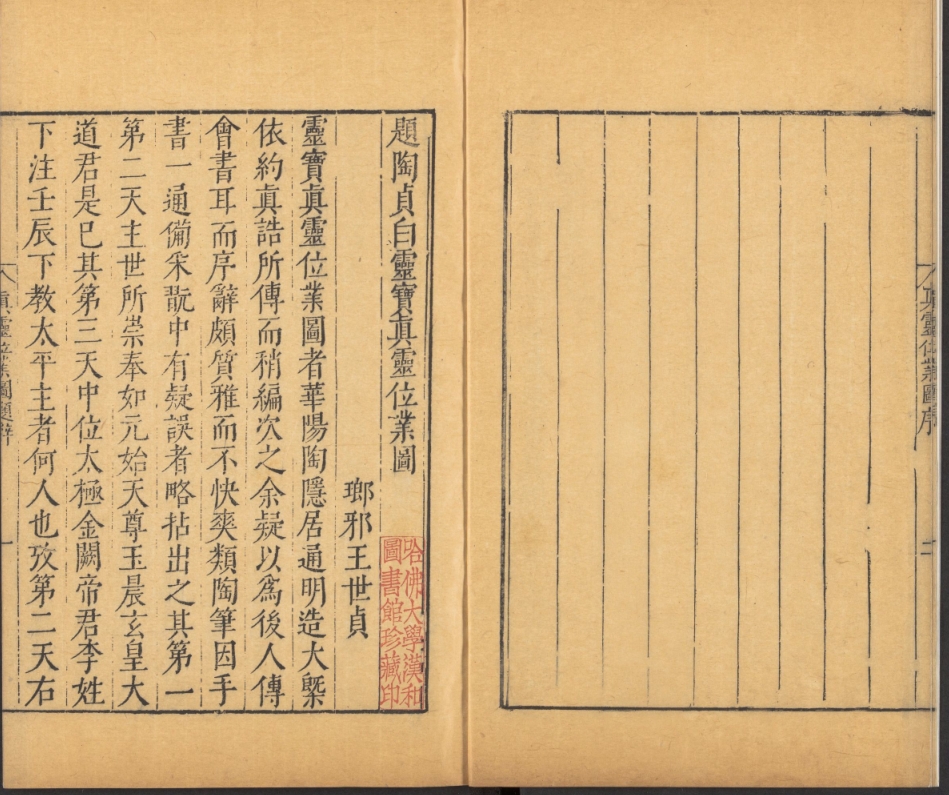 真靈位業圖序
題陶貞白靈寶眞靈位業圖
哈佛大學漢和
圖書館珍藏印
瑯邪王世貞
靈寶眞靈位業圖者華陽陶隱居通明造大槩
依約眞誥所傳而稍編次之余疑以爲後人傳
會書耳而序辭頗質雅而不快爽類陶筆因手
書一通備采翫中有疑誤者略拈出之其第一
第二天主世所崇奉如元始天尊玉晨玄皇大
道君是巳其第三天中位太極金闕帝君李姓
下注壬辰下教太平主者何人也攷第二天右
眞靈位業圖題辭
一